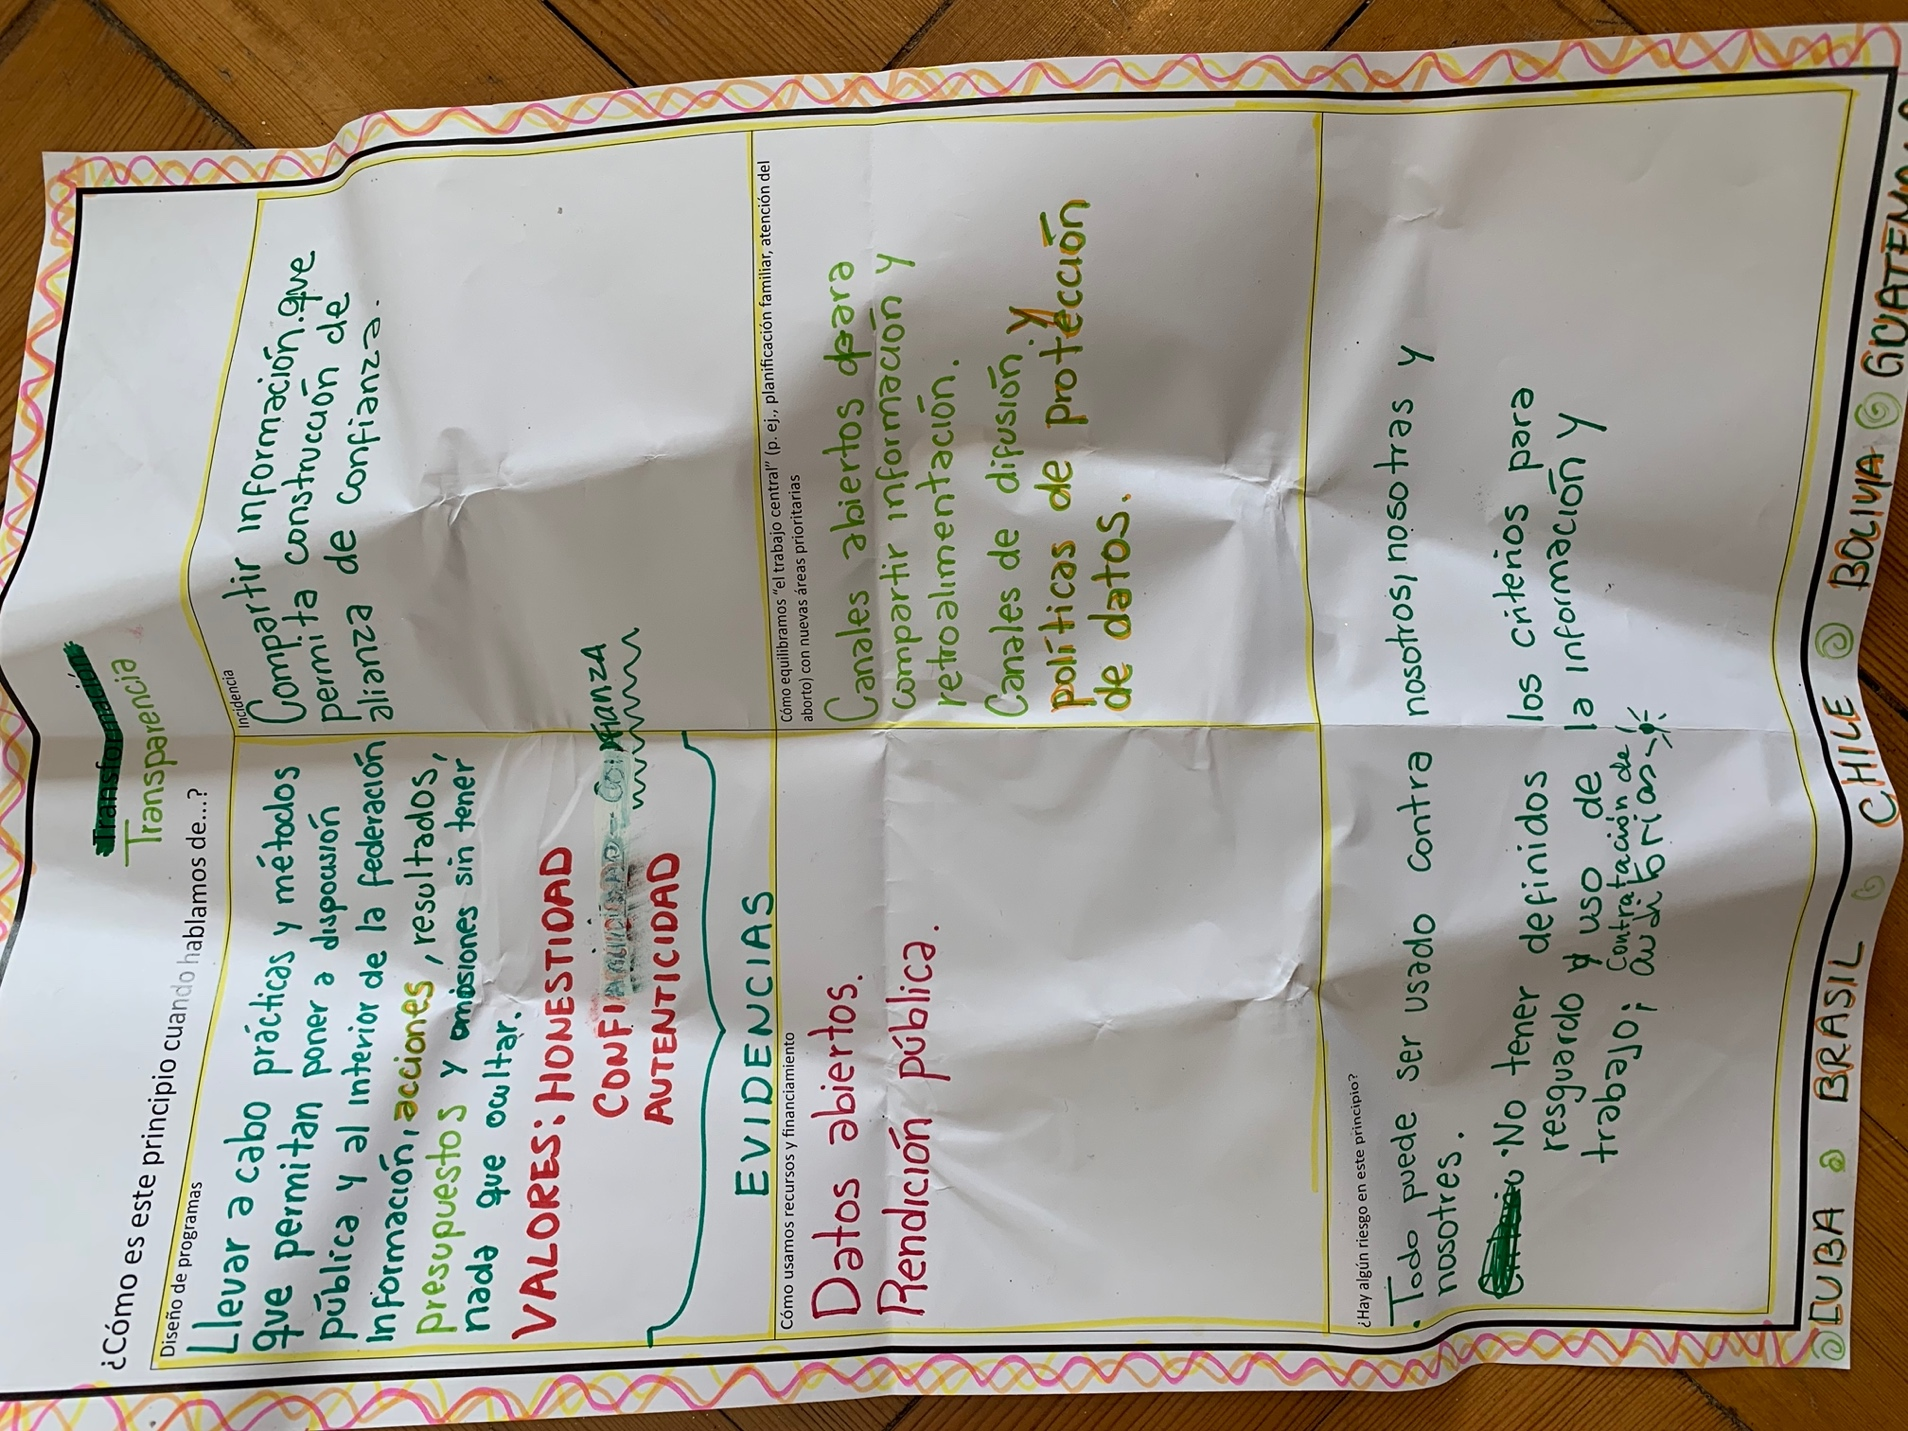 Transformación
Transparencia
¿Cómo es este principio cuando hablamos de...?
Diseño de programas
Llevar a cabo prácticas y métodos
que permitan poner a disposición
pública y al interior de la federación
información, acciones, resultados,
presupuestos y omosiones sin tener
nada que ocultar.
VALORES: HONESTIDAD
CONFIANZA
AUTENTICIDAD
EVIDENCIAS
Incidencia
Compartir información que
permita construcción de
alianza de confianza.
Cómo usamos recursos y financiamiento
Datos abiertos.
Rendición pública.
Cómo equilibramos "el trabajo central" (p. ej., planificación familiar, atención del
aborto) con nuevas áreas prioritarias
Canales abiertos para
compartir información y
retroalimentación.
Canales de difusión y
políticas de protección
de datos.
¿Hay algún riesgo en este principio?
• Todo puede ser usado contra nosotros, nosotras y
nosotres.
• No tener definidos los criterios para
resguardo y uso de la información y
trabajo; contratación de
auditorias
CUBA BRASIL CHILE BOLIVIA GUATEMALA